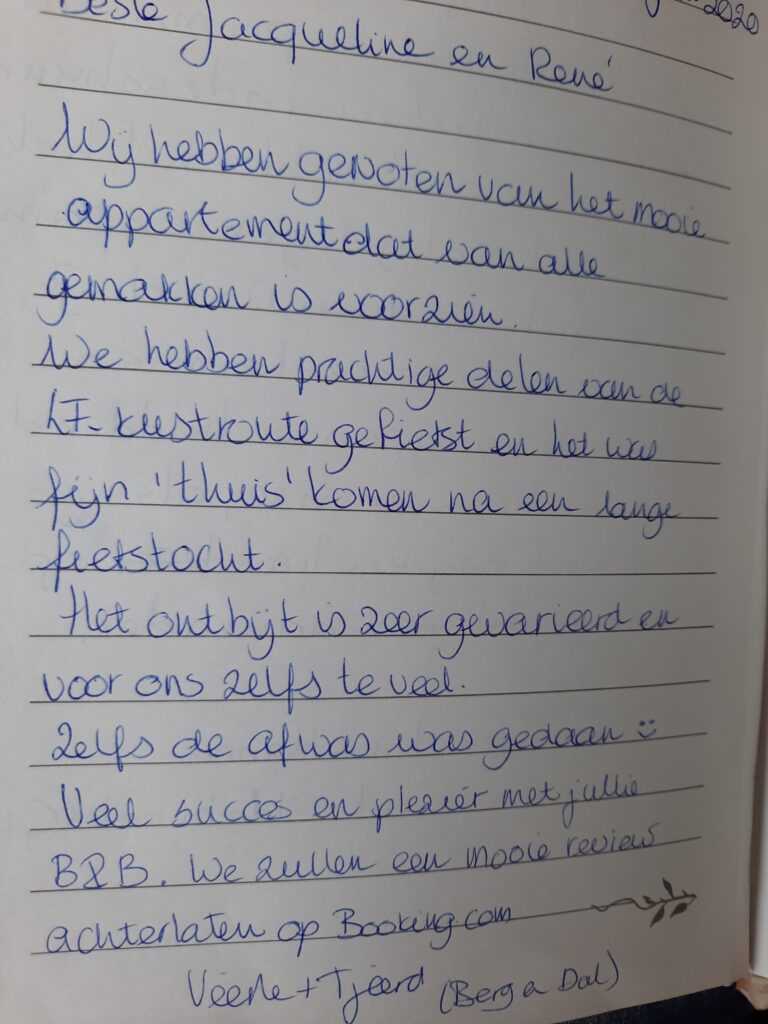 2020
Beste Jacqueline en René
Wij hebben genoten van het mooie
appartement dat van alle
gemakken is voorzien.
We hebben prachtige delen van de
LF-kustroute gefietst en het was
fijn 'thuis' komen na een lange
fietstocht.
Het ontbijt is zeer gevarieerd en
voor ons zelfs te veel.
Zelfs de afwas was gedaan ☺
Veel succes en plezier met jullie
B&B. We zullen een mooie review
achterlaten op Booking.com
Veerle + Tjeerd (Berg a Dal)